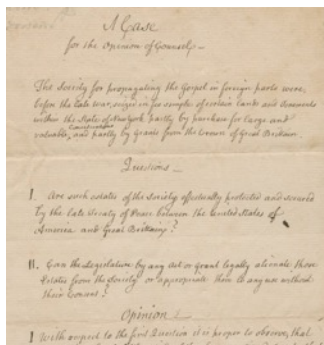 A Case
for the Opinion of Counsel,—
The Society for propagating the Gospel in foreign parts were,
before the late war, seized in fee simple of certain lands and tenements
within the State of New York partly by purchase for large and
valuable considerations, and partly by Grants from the Crown of Great Britain.
Questions—
I. Are such estates of the Society effectually protected and secured
by the late Treaty of Peace between the United States of
America and Great Britain?
II. Can the Legislature by any Act or Grant legally alienate those
Estates from the Society or appropriate them to any use without
their Consent?
Opinion
I With respect to the first Question it is proper to observe, that